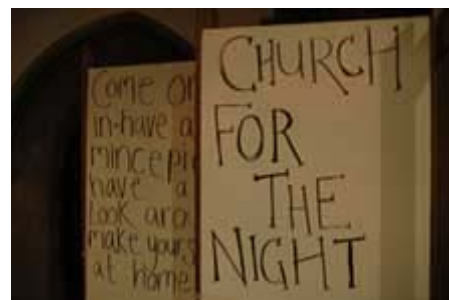 Come on
in-have a
mince pie
have a
look aro
make yours
at home
CHURCH
FOR
THE
NIGHT